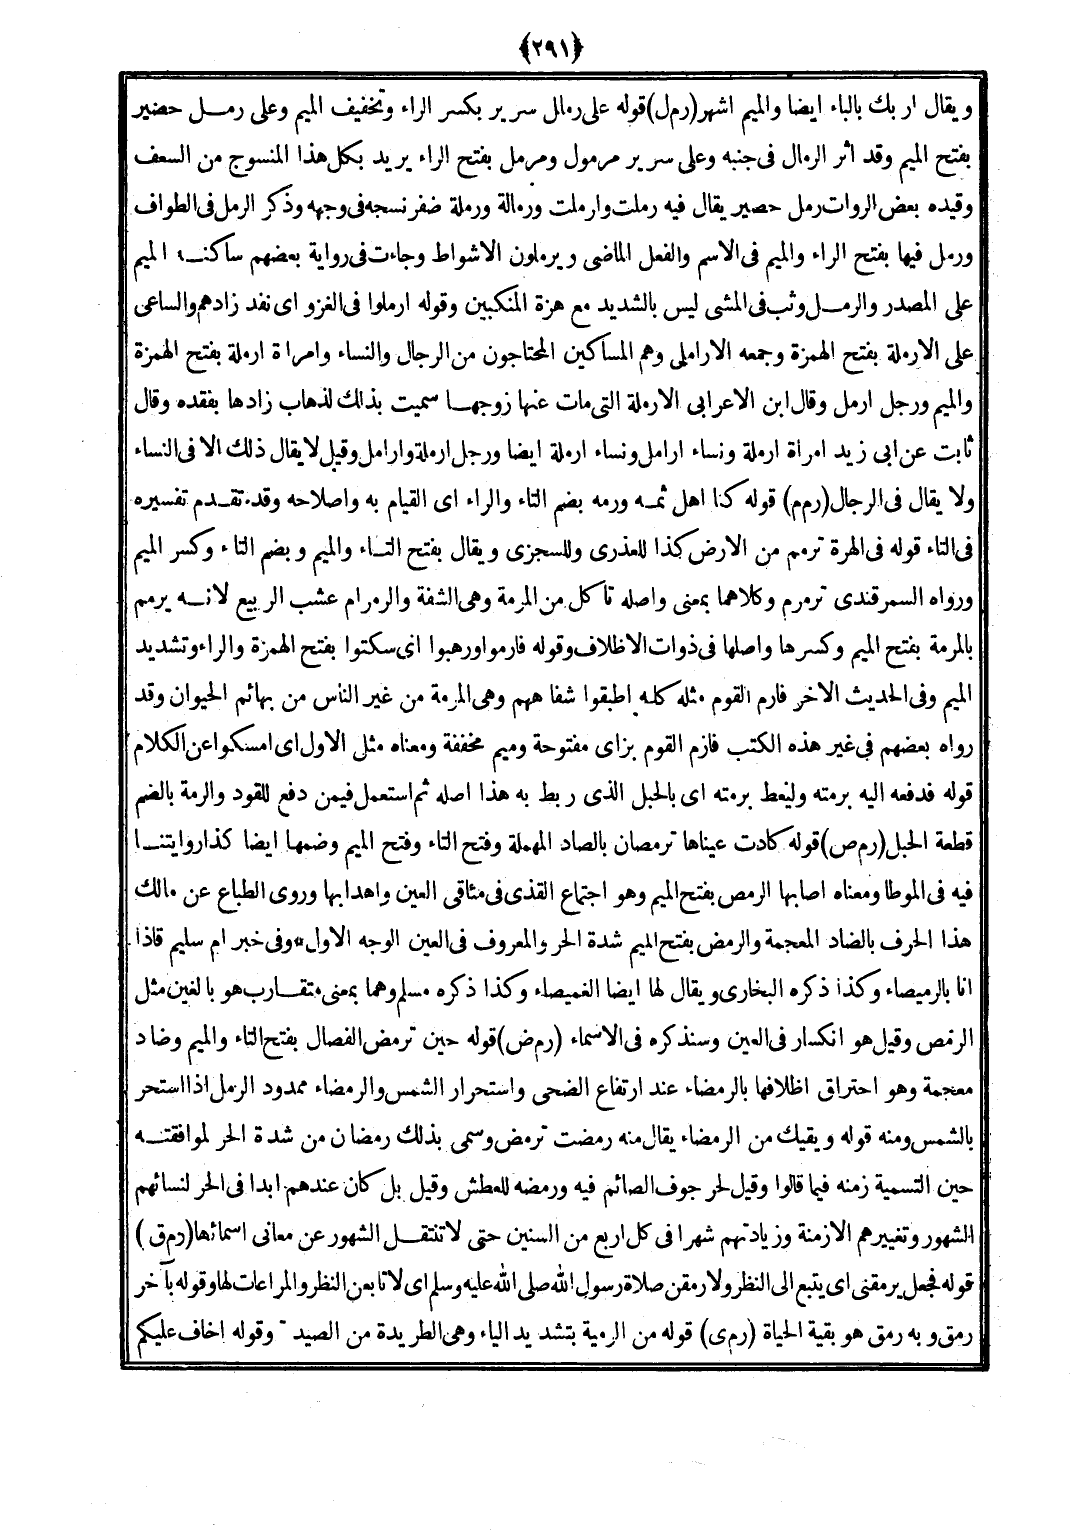 ﴿٢٩١﴾
ويقال اربك بالباء ايضا والميم اشهر (رم ل) قوله على رمال سرير بكسر الراء وتخفيف الميم وعلى رمل حصير
بفتح الميم وقد اثر الرمال فى جنبه وعلى سرير مرمول ومرمل بفتح الراء يريد بكل هذا المنسوج من السعف
وقيده بعض الروات رمل حصير يقال فيه رملت وارملت ورمالة ورملة ضفر نسجه فى وجهه وذكر الرمل فى الطواف
ورمل فيها بفتح الراء والميم فى الاسم والفعل الماضى ويرملون الاشواط وجاءت فى رواية بعضهم ساكنة الميم
على المصدر والرمل وثب فى المشى ليس بالشديد مع هزة المنكبين وقوله ارملوا فى الغزو اى نفد زادهم والساعى
على الارملة بفتح الهمزة وجمعه الارامل وهم المساكين المحتاجون من الرجال والنساء وامراة ارملة بفتح الهمزة
والميم ورجل ارمل وقال ابن الاعرابى الارملة التى مات عنها زوجها سميت بذلك لذهاب زادها بفقده وقال
ثابت عن ابى زيد امراة ارملة ونساء ارامل ونساء ارملة ايضا ورجل ارملة وارامل وقيل لا يقال ذلك الا فى النساء
ولا يقال فى الرجال (رم م) قوله كنا اهل ثمه ورمه بضم الثاء والراء اى القيام به واصلاحه وقد تقدم تفسيره
فى الثاء قوله فى الهرة ترمم من الارض كذا للعذرى وللسجزى ويقال بفتح التاء والميم وبضم التاء وكسر الميم
ورواه السمرقندى ترمرم وكلاهما بمعنى واصله تاكل من المرمة وهى الشفة والرمرام عشب الربيع لانه يرمم
بالمرمة بفتح الميم وكسرها واصلها فى ذوات الاظلاف وقوله فارموا ورهبوا اى سكتوا بفتح الهمزة والراء وتشديد
الميم وفى الحديث الاخر فارم القوم مثله كله اطبقوا شفاههم وهى المرمة من غير الناس من بهائم الحيوان وقد
رواه بعضهم فى غير هذه الكتب فازم القوم بزاى مفتوحة وميم مخففة ومعناه مثل الاول اى امسكوا عن الكلام
قوله فدفعه اليه برمته وليعط برمته اى بالحبل الذى ربط به هذا اصله ثم استعمل فيمن دفع للقود والرمة بالضم
قطعة الحبل (رم ص) قوله كادت عيناها ترمصان بالصاد المهملة وفتح التاء وفتح الميم وضمها ايضا كذا روايتنا
فيه فى الموطا ومعناه اصابها الرمص بفتح الميم وهو اجتماع القذى فى مئاقى العين واهدابها وروى الطباع عن مالك
هذا الحرف بالضاد المعجمة والرمض بفتح الميم شدة الحر والمعروف فى العين الوجه الاول * وفى خبر ام سليم فاذا
انا بالرميصاء وكذا ذكره البخارى ويقال لها ايضا الغميصاء وكذا ذكره مسلم وهما بمعنى متقارب هو بالغين مثل
الرمص وقيل هو انكسار فى العين وسنذكره فى الاسماء (رم ض) قوله حين ترمض الفصال بفتح التاء والميم وضاد
معجمة وهو احتراق اظلافها بالرمضاء عند ارتفاع الضحى واستحرار الشمس والرمضاء ممدود الرمل اذا استحر
بالشمس ومنه قوله ويقيك من الرمضاء يقال منه رمضت ترمض وسمى بذلك رمضان من شدة الحر لموافقته
حين التسمية زمنه فيما قالوا وقيل لحر جوف الصائم فيه ورمضه للعطش وقيل بل كان عندهم ابدا فى الحر لنسائهم
الشهور وتغييرهم الازمنة وزيادتهم شهرا فى كل اربع من السنين حتى لا تنتقل الشهور عن معانى اسمائها (رم ق)
قوله فجعل يرمقنى اى يتبع الى النظر ولارمقن صلاة رسول الله صلى الله عليه وسلم اى لاتابعن النظر والمراعات لها وقوله بآخر
رمق وبه رمق هو بقية الحياة (رم ى) قوله من الرمية بتشديد الياء وهى الطريدة من الصيد وقوله اخاف عليكم